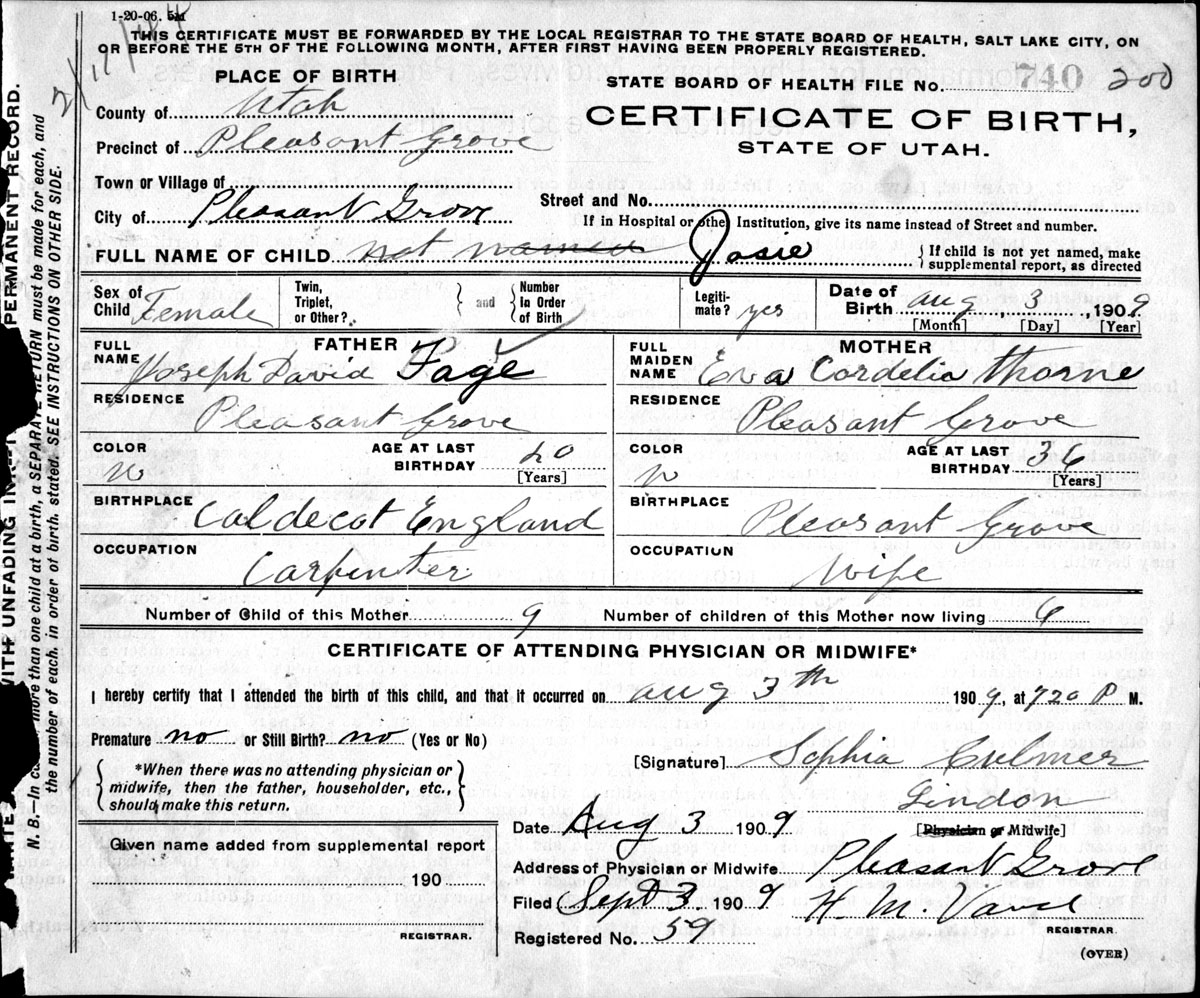 1-20-06. 5M
THIS CERTIFICATE MUST BE FORWARDED BY THE LOCAL REGISTRAR TO THE STATE BOARD OF HEALTH, SALT LAKE CITY, ON
OR BEFORE THE 5TH OF THE FOLLOWING MONTH, AFTER FIRST HAVING BEEN PROPERLY REGISTERED.
PLACE OF BIRTH
STATE BOARD OF HEALTH FILE No. 740 200
County of Utah
CERTIFICATE OF BIRTH,
STATE OF UTAH.
Precinct of Pleasant Grove
Town or Village of
Street and No.
City of Pleasant Grove
If in Hospital or other Institution, give its name instead of Street and number.
FULL NAME OF CHILD not named Josie
If child is not yet named, make
supplemental report, as directed
Sex of Child Female
Twin, Triplet, or Other? and Number In Order of Birth
Legiti-mate? yes
Date of Birth Aug 3, 1909
[Month] [Day] [Year]
FATHER
FULL NAME Joseph David Fage
RESIDENCE Pleasant Grove
COLOR W
AGE AT LAST BIRTHDAY 40 [Years]
BIRTHPLACE Caldecot England
OCCUPATION Carpenter
MOTHER
FULL MAIDEN NAME Eva Cordelia Thorne
RESIDENCE Pleasant Grove
COLOR W
AGE AT LAST BIRTHDAY 36 [Years]
BIRTHPLACE Pleasant Grove
OCCUPATION Wife
Number of Child of this Mother 9 Number of children of this Mother now living 6
CERTIFICATE OF ATTENDING PHYSICIAN OR MIDWIFE*
I hereby certify that I attended the birth of this child, and that it occurred on Aug 3th 1909, at 720 P M.
Premature no or Still Birth? no (Yes or No)
*When there was no attending physician or
midwife, then the father, householder, etc.,
should make this return.
[Signature] Sophia Culmer
Lindon
[Physician or Midwife]
Date Aug 3 1909
Given name added from supplemental report
190
REGISTRAR.
Address of Physician or Midwife Pleasant Grove
Filed Sept 3 1909 H. M.
REGISTRAR.
Registered No. 59
(OVER)
PERMANENT RECORD.
WITH UNFADING INK
N. B.—In more than one child at a birth, a SEPARATE RETURN must be made for each, and
the number of each, in order of birth, stated. SEE INSTRUCTIONS ON OTHER SIDE.